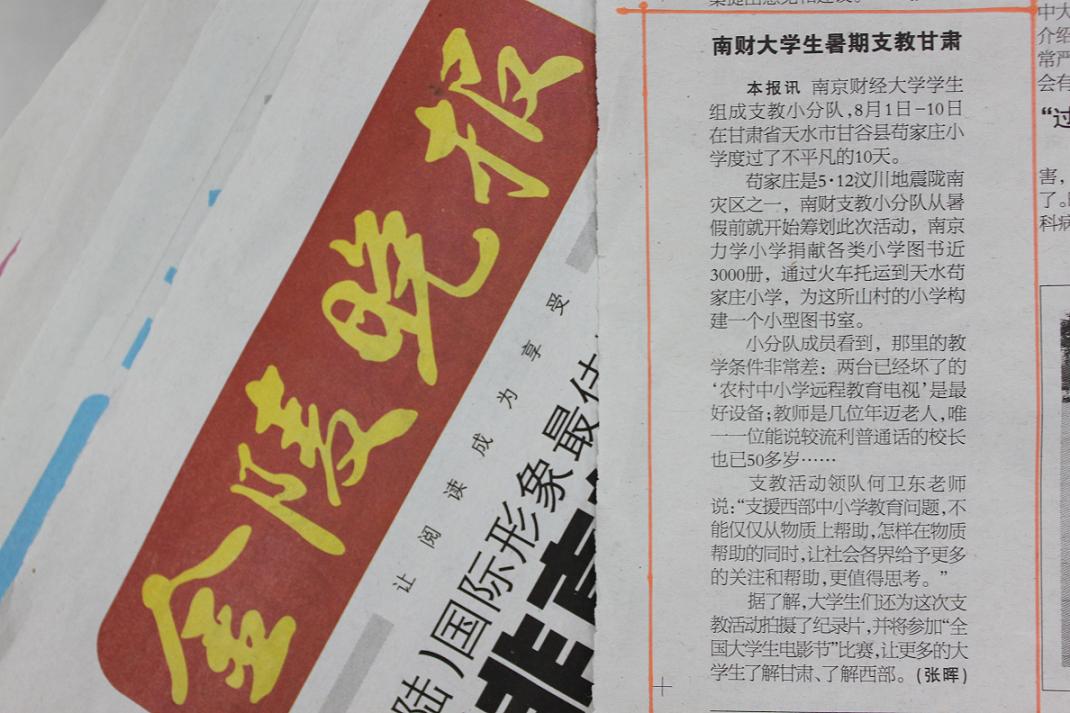 金陵晚报
让阅读成为享受
陆)国际形象最佳
南财大学生暑期支教甘肃
本报讯 南京财经大学学生
组成支教小分队,8月1日-10日
在甘肃省天水市甘谷县苟家庄小
学度过了不平凡的10天。
苟家庄是5·12汶川地震陇南
灾区之一，南财支教小分队从暑
假前就开始筹划此次活动，南京
力学小学捐献各类小学图书近
3000册，通过火车托运到天水苟
家庄小学，为这所山村的小学构
建一个小型图书室。
小分队成员看到，那里的教
学条件非常差：两台已经坏了的
‘农村中小学远程教育电视’是最
好设备;教师是几位年迈老人,唯
一一位能说较流利普通话的校长
也已50多岁……
支教活动领队何卫东老师
说:“支援西部中小学教育问题,不
能仅仅从物质上帮助,怎样在物质
帮助的同时,让社会各界给予更多
的关注和帮助,更值得思考。”
据了解,大学生们还为这次支
教活动拍摄了纪录片,并将参加“全
国大学生电影节”比赛,让更多的大
学生了解甘肃、了解西部。(张晖)
中大
介绍
常严
会有
“过
害，
了。
科病